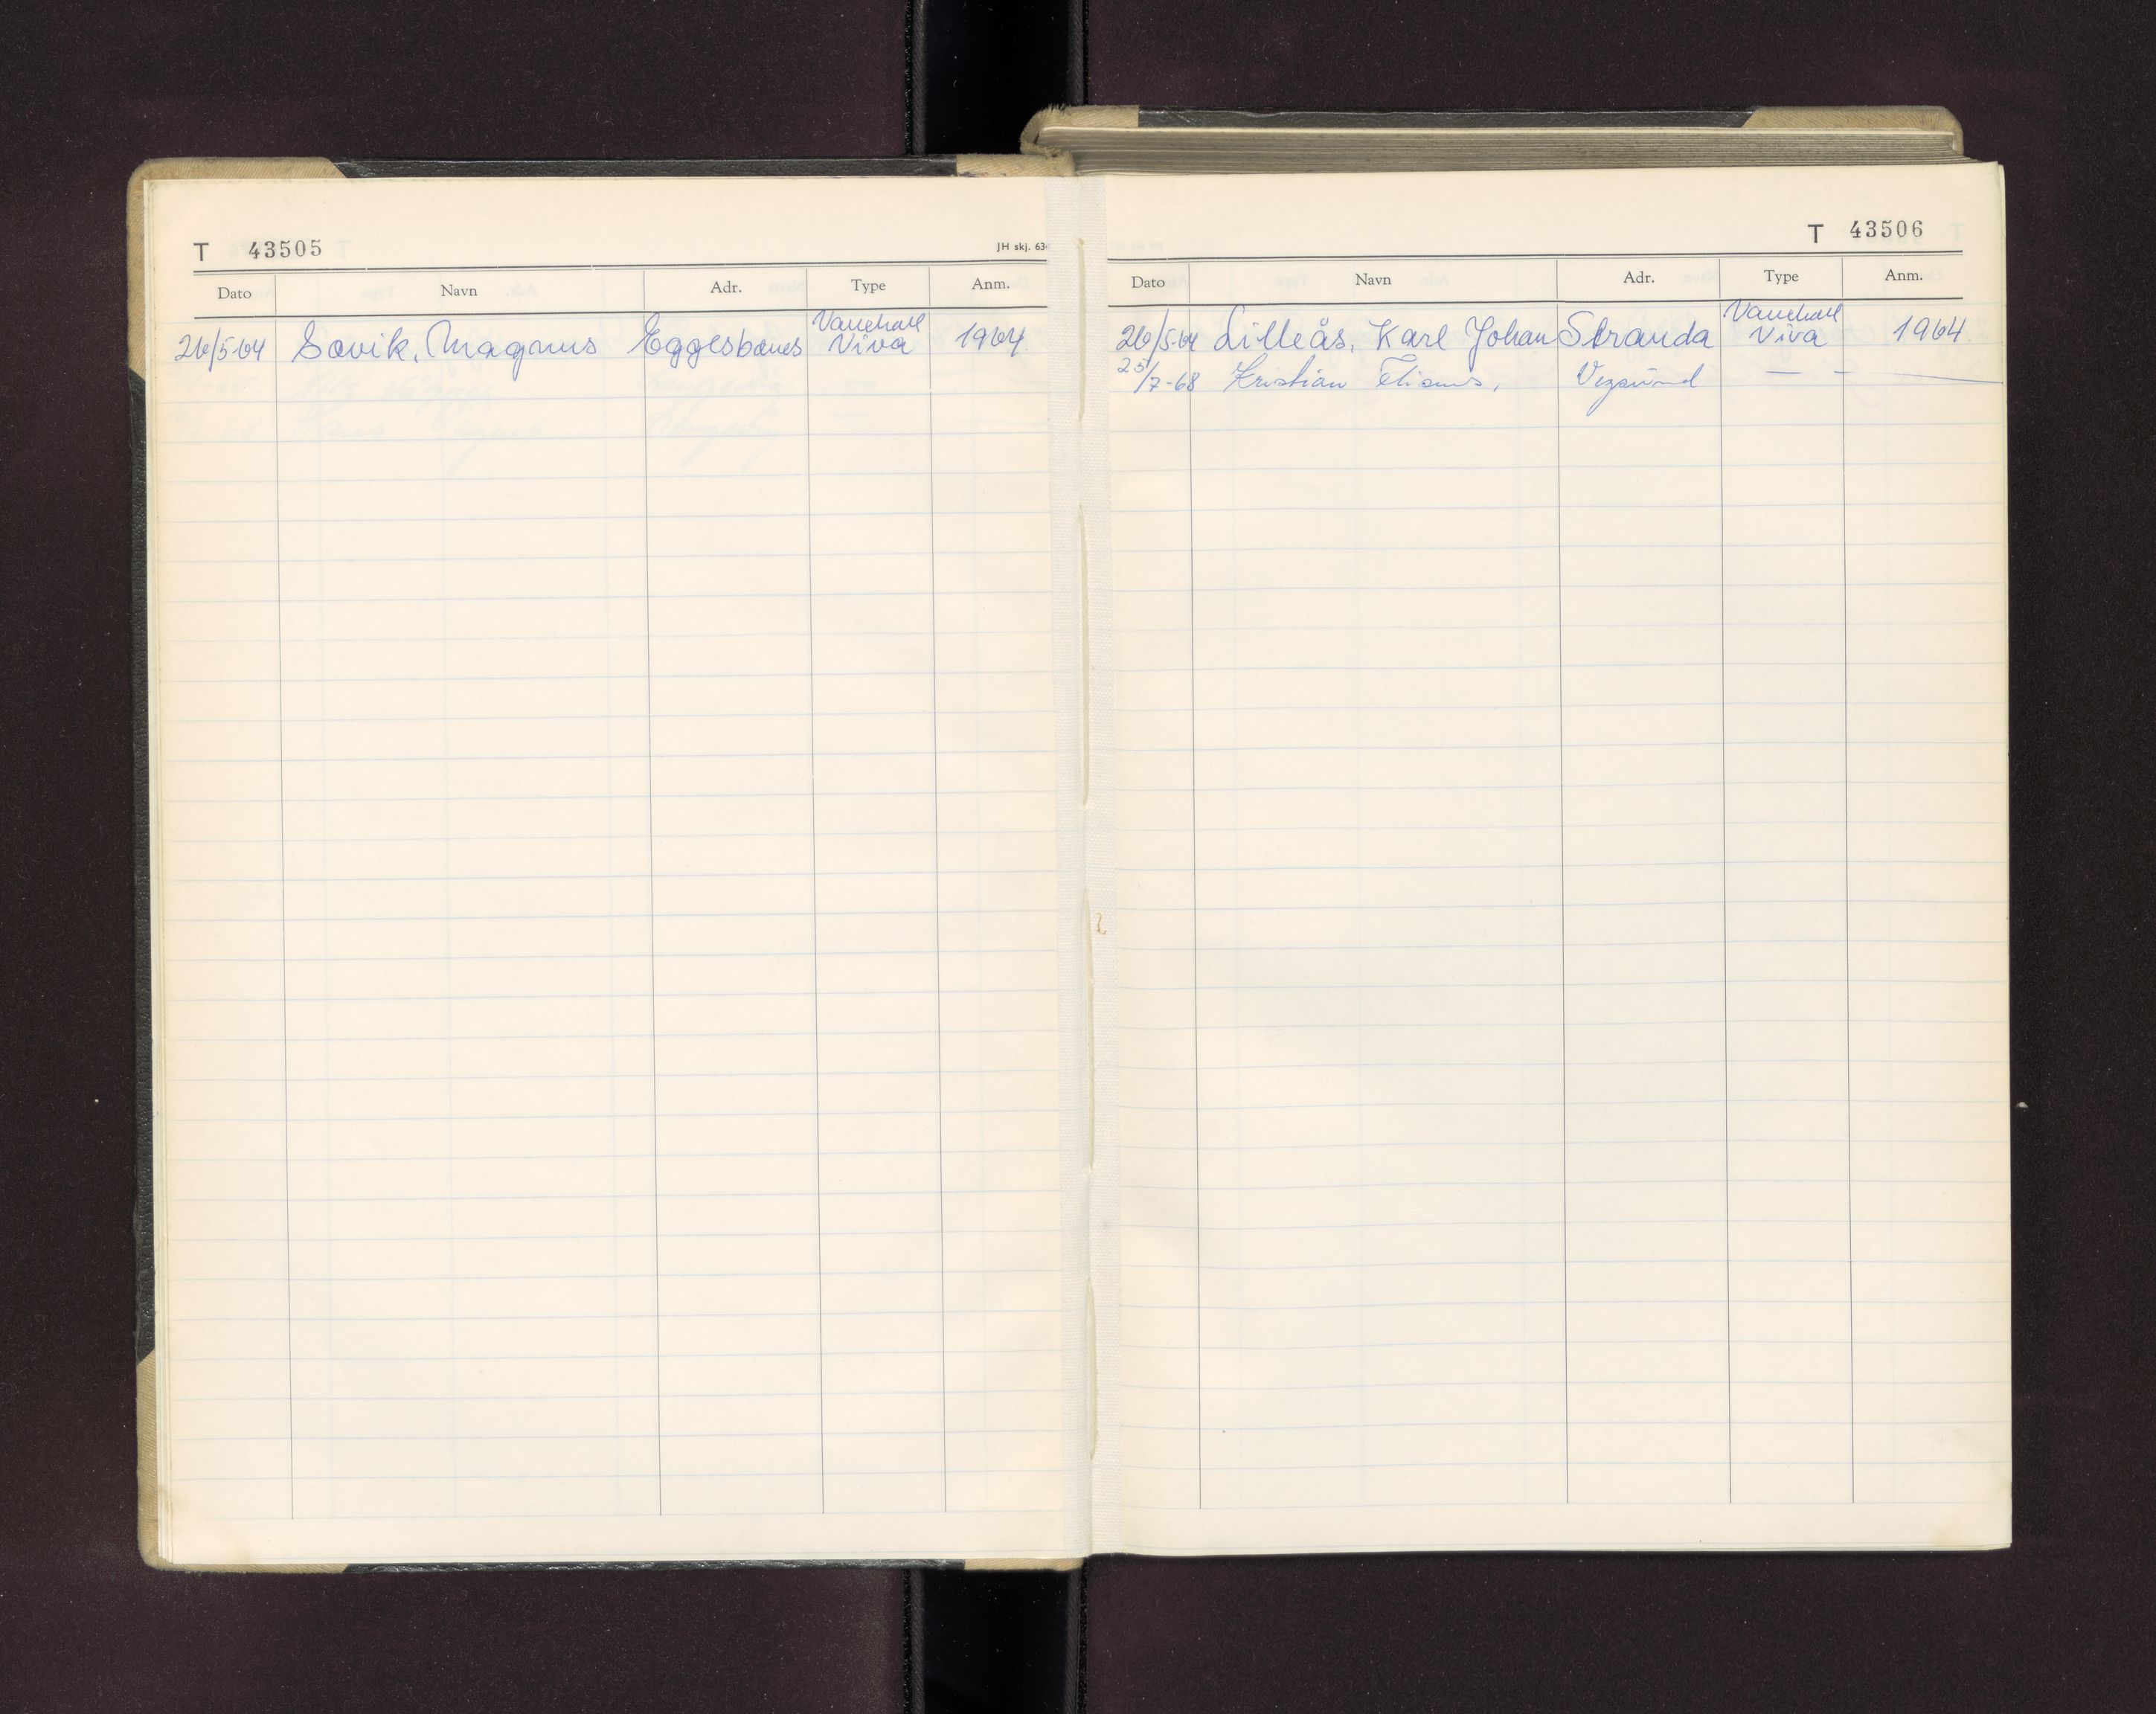 T 43505
JH skj. 63
Dato Navn Adr. Type Anm.
26/5-64 Søvik, Magnus Eggesbønes Vauxhall Viva 1964
T 43506
Dato Navn Adr. Type Anm.
26/5-64 Lilleås, Karl Johan Stranda Vauxhall Viva 1964
25/7-68 Kristian Vegsund — —